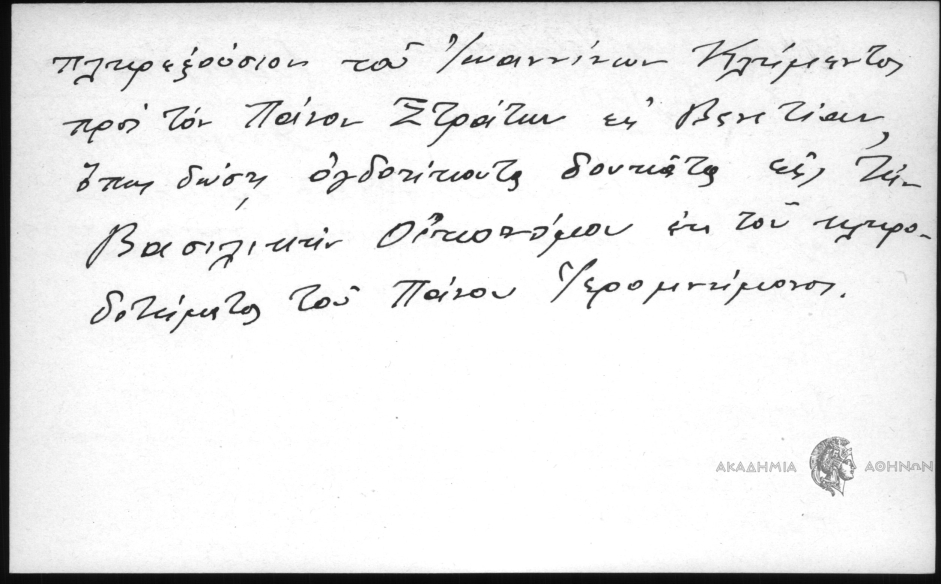 πληρεξούσιον τοῦ Ἰωαννίνων Κλήμεντος
πρὸς τὸν Πάνον Στράτων εἰς Βενετίαν,
ὅπως δώσῃ ὀγδοήκοντα δουκάτα εἰς τὴν
Βασιλικὴν Οἰκονόμου ἐκ τοῦ κληρο-
δοτήματος τοῦ Πάνου Ἱερομνήμονος.
ΑΚΑΔΗΜΙΑ ΑΘΗΝΩΝ